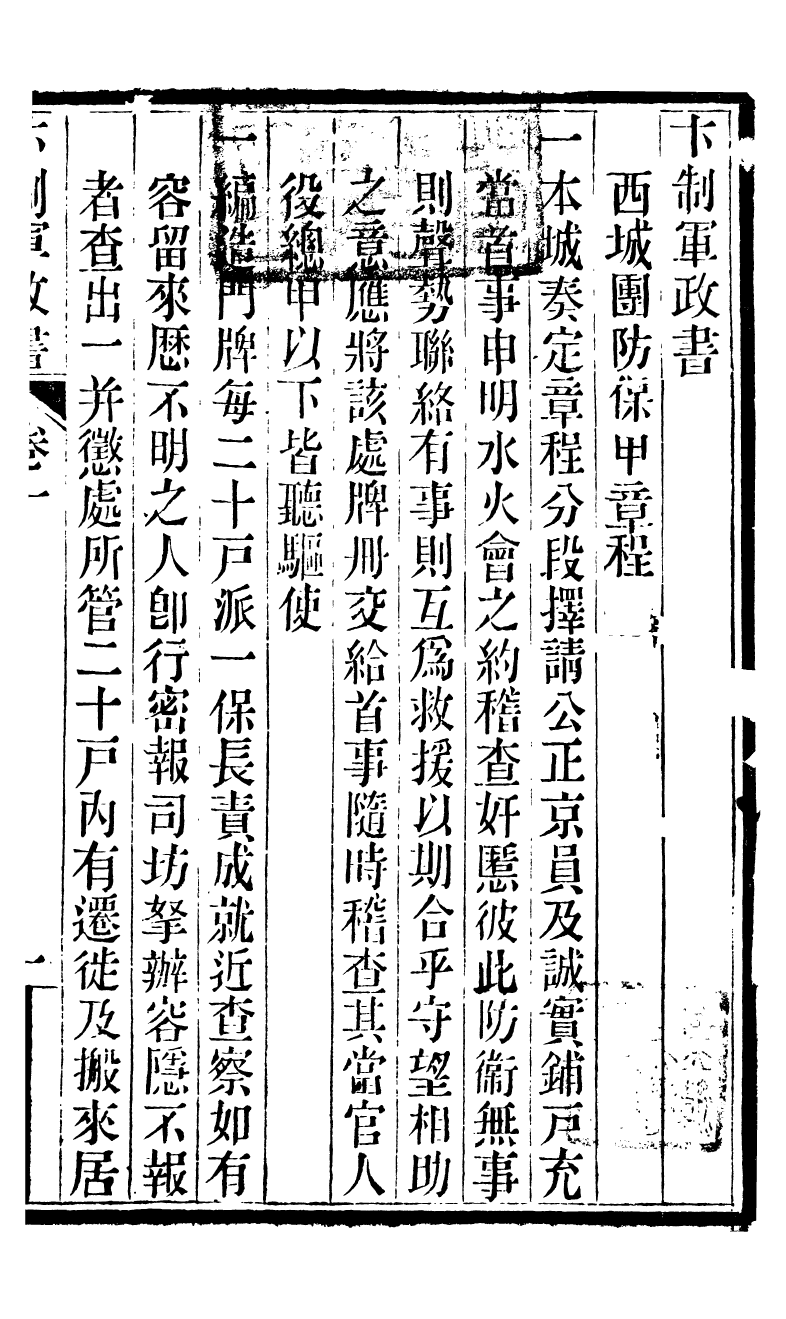 卞制軍政書
西城團防保甲章程
一本城奏定章程分段擇請公正京員及誠實鋪戸充
當首事申明水火會之約稽查奸慝彼此防衞無事
則聲勢聯絡有事則互爲救援以期合乎守望相助
之意應將該處牌册交給首事隨時稽查其當官人
役總甲以下皆聽驅使
一編造門牌每二十戸派一保長責成就近查察如有
容留來歷不明之人卽行密報司坊拏辦容隱不報
者查出一并懲處所管二十戸內有遷徙及搬來居
卞制軍政書 卷一 一